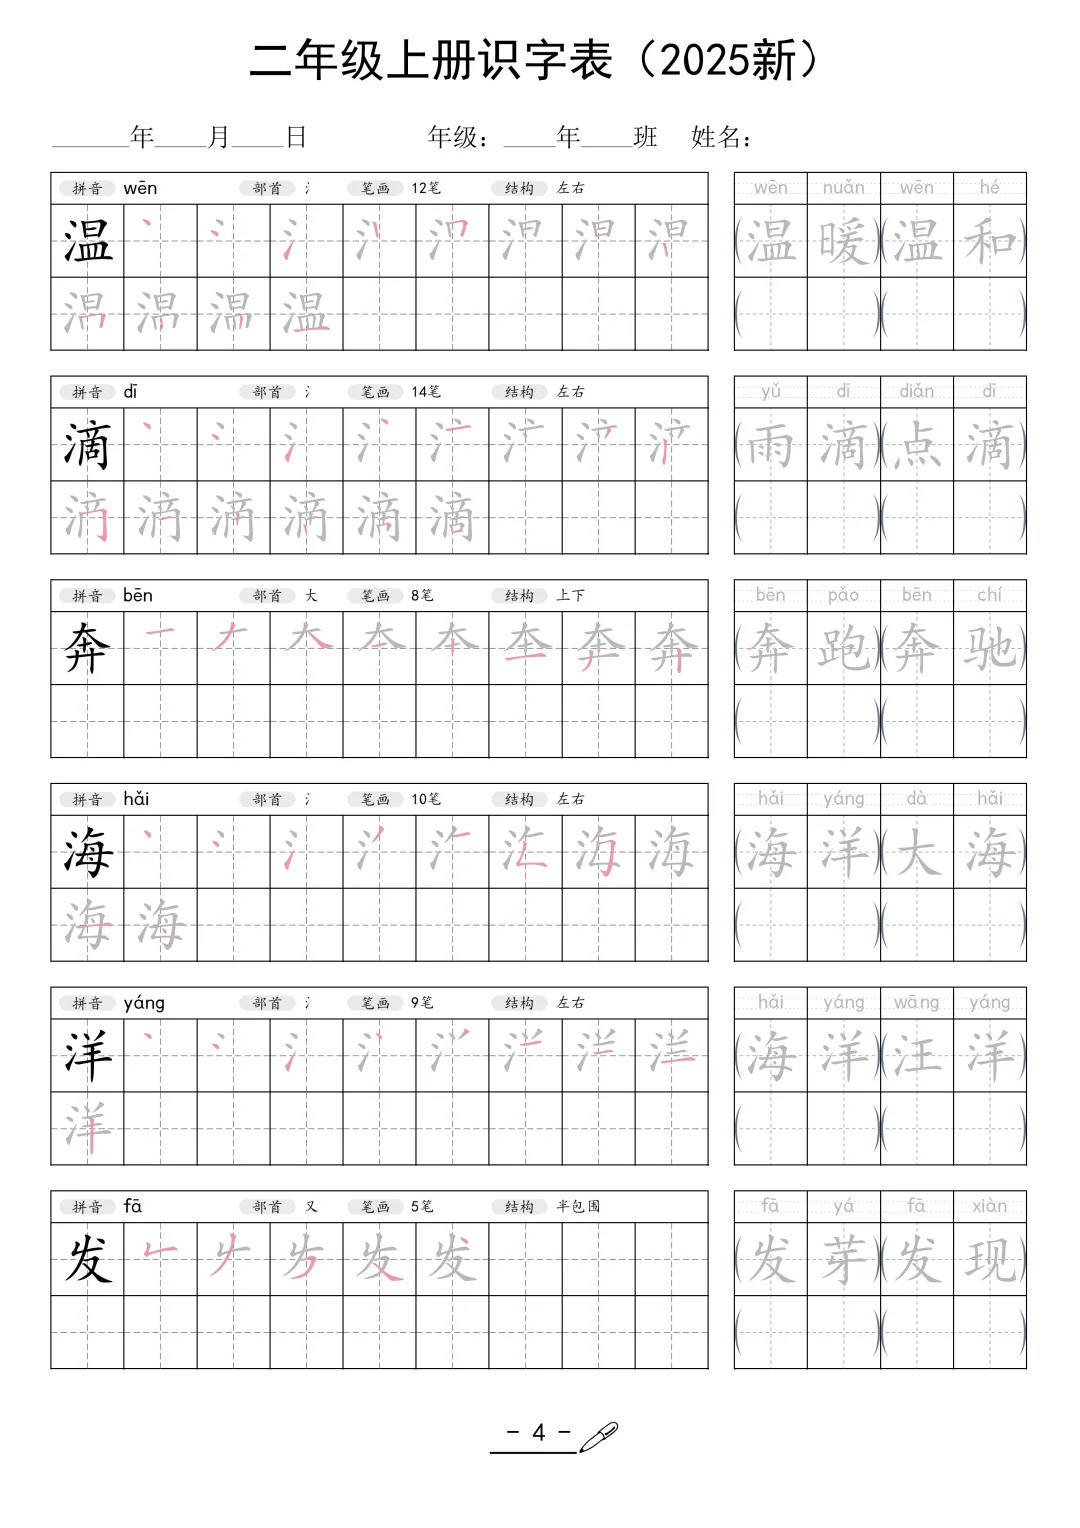 二年级上册识字表（2025新）
______年____月____日 年级：____年____班 姓名：
拼音 wēn 部首 氵 笔画 12笔 结构 左右
wēn nuǎn wēn hé
温
(温暖)(温和)
温
拼音 dī 部首 氵 笔画 14笔 结构 左右
yǔ dī diǎn dī
滴
(雨滴)(点滴)
滴
拼音 bēn 部首 大 笔画 8笔 结构 上下
bēn pǎo bēn chí
奔 奔
(奔跑)(奔驰)
拼音 hǎi 部首 氵 笔画 10笔 结构 左右
hǎi yáng dà hǎi
海
(海洋)(大海)
海
拼音 yáng 部首 氵 笔画 9笔 结构 左右
hǎi yáng wāng yáng
洋
(海洋)(汪洋)
洋
拼音 fā 部首 又 笔画 5笔 结构 半包围
fā yá fā xiàn
发 发
(发芽)(发现)
- 4 -